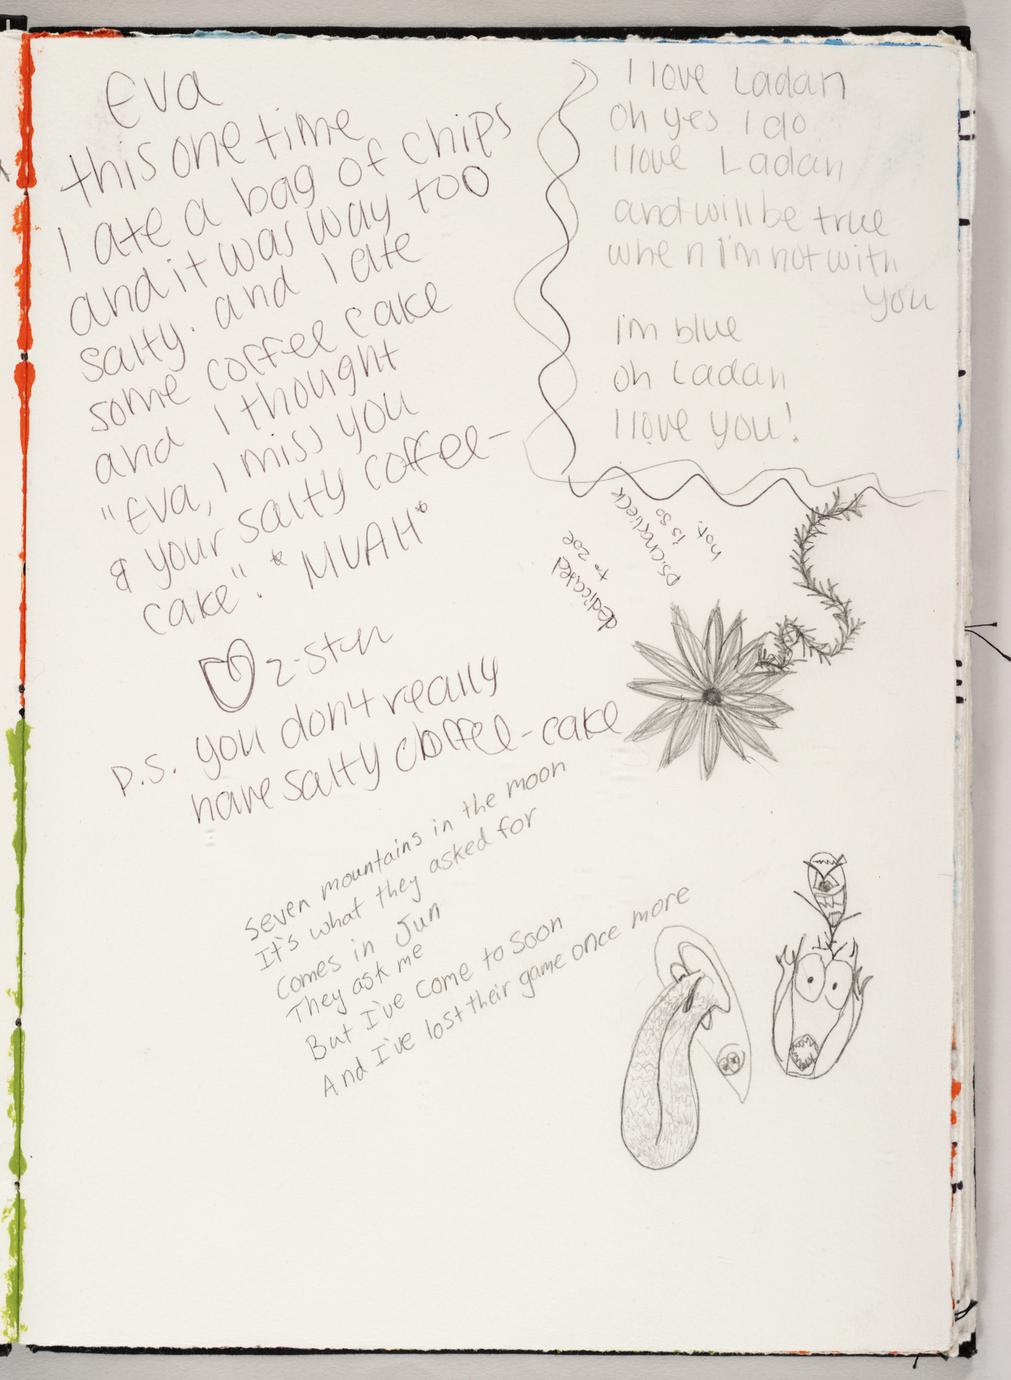 Eva
this one time
I ate a bag of chips
and it was way too
salty. and I ate
some coffee cake
and I thought
"Eva, I miss you
& your salty coffee-
cake". *MUAH*
z-ster
P.S. you don't really
have salty coffee-cake
I love Ladan
oh yes I do
I love Ladan
and will be true
when I'm not with
you
I'm blue
oh Ladan
I love you!
dedicated
to zoe
is so
hot.
seven mountains in the moon
It's what they asked for
Comes in Jun
They ask me
But I've come to soon
And I've lost their game once more